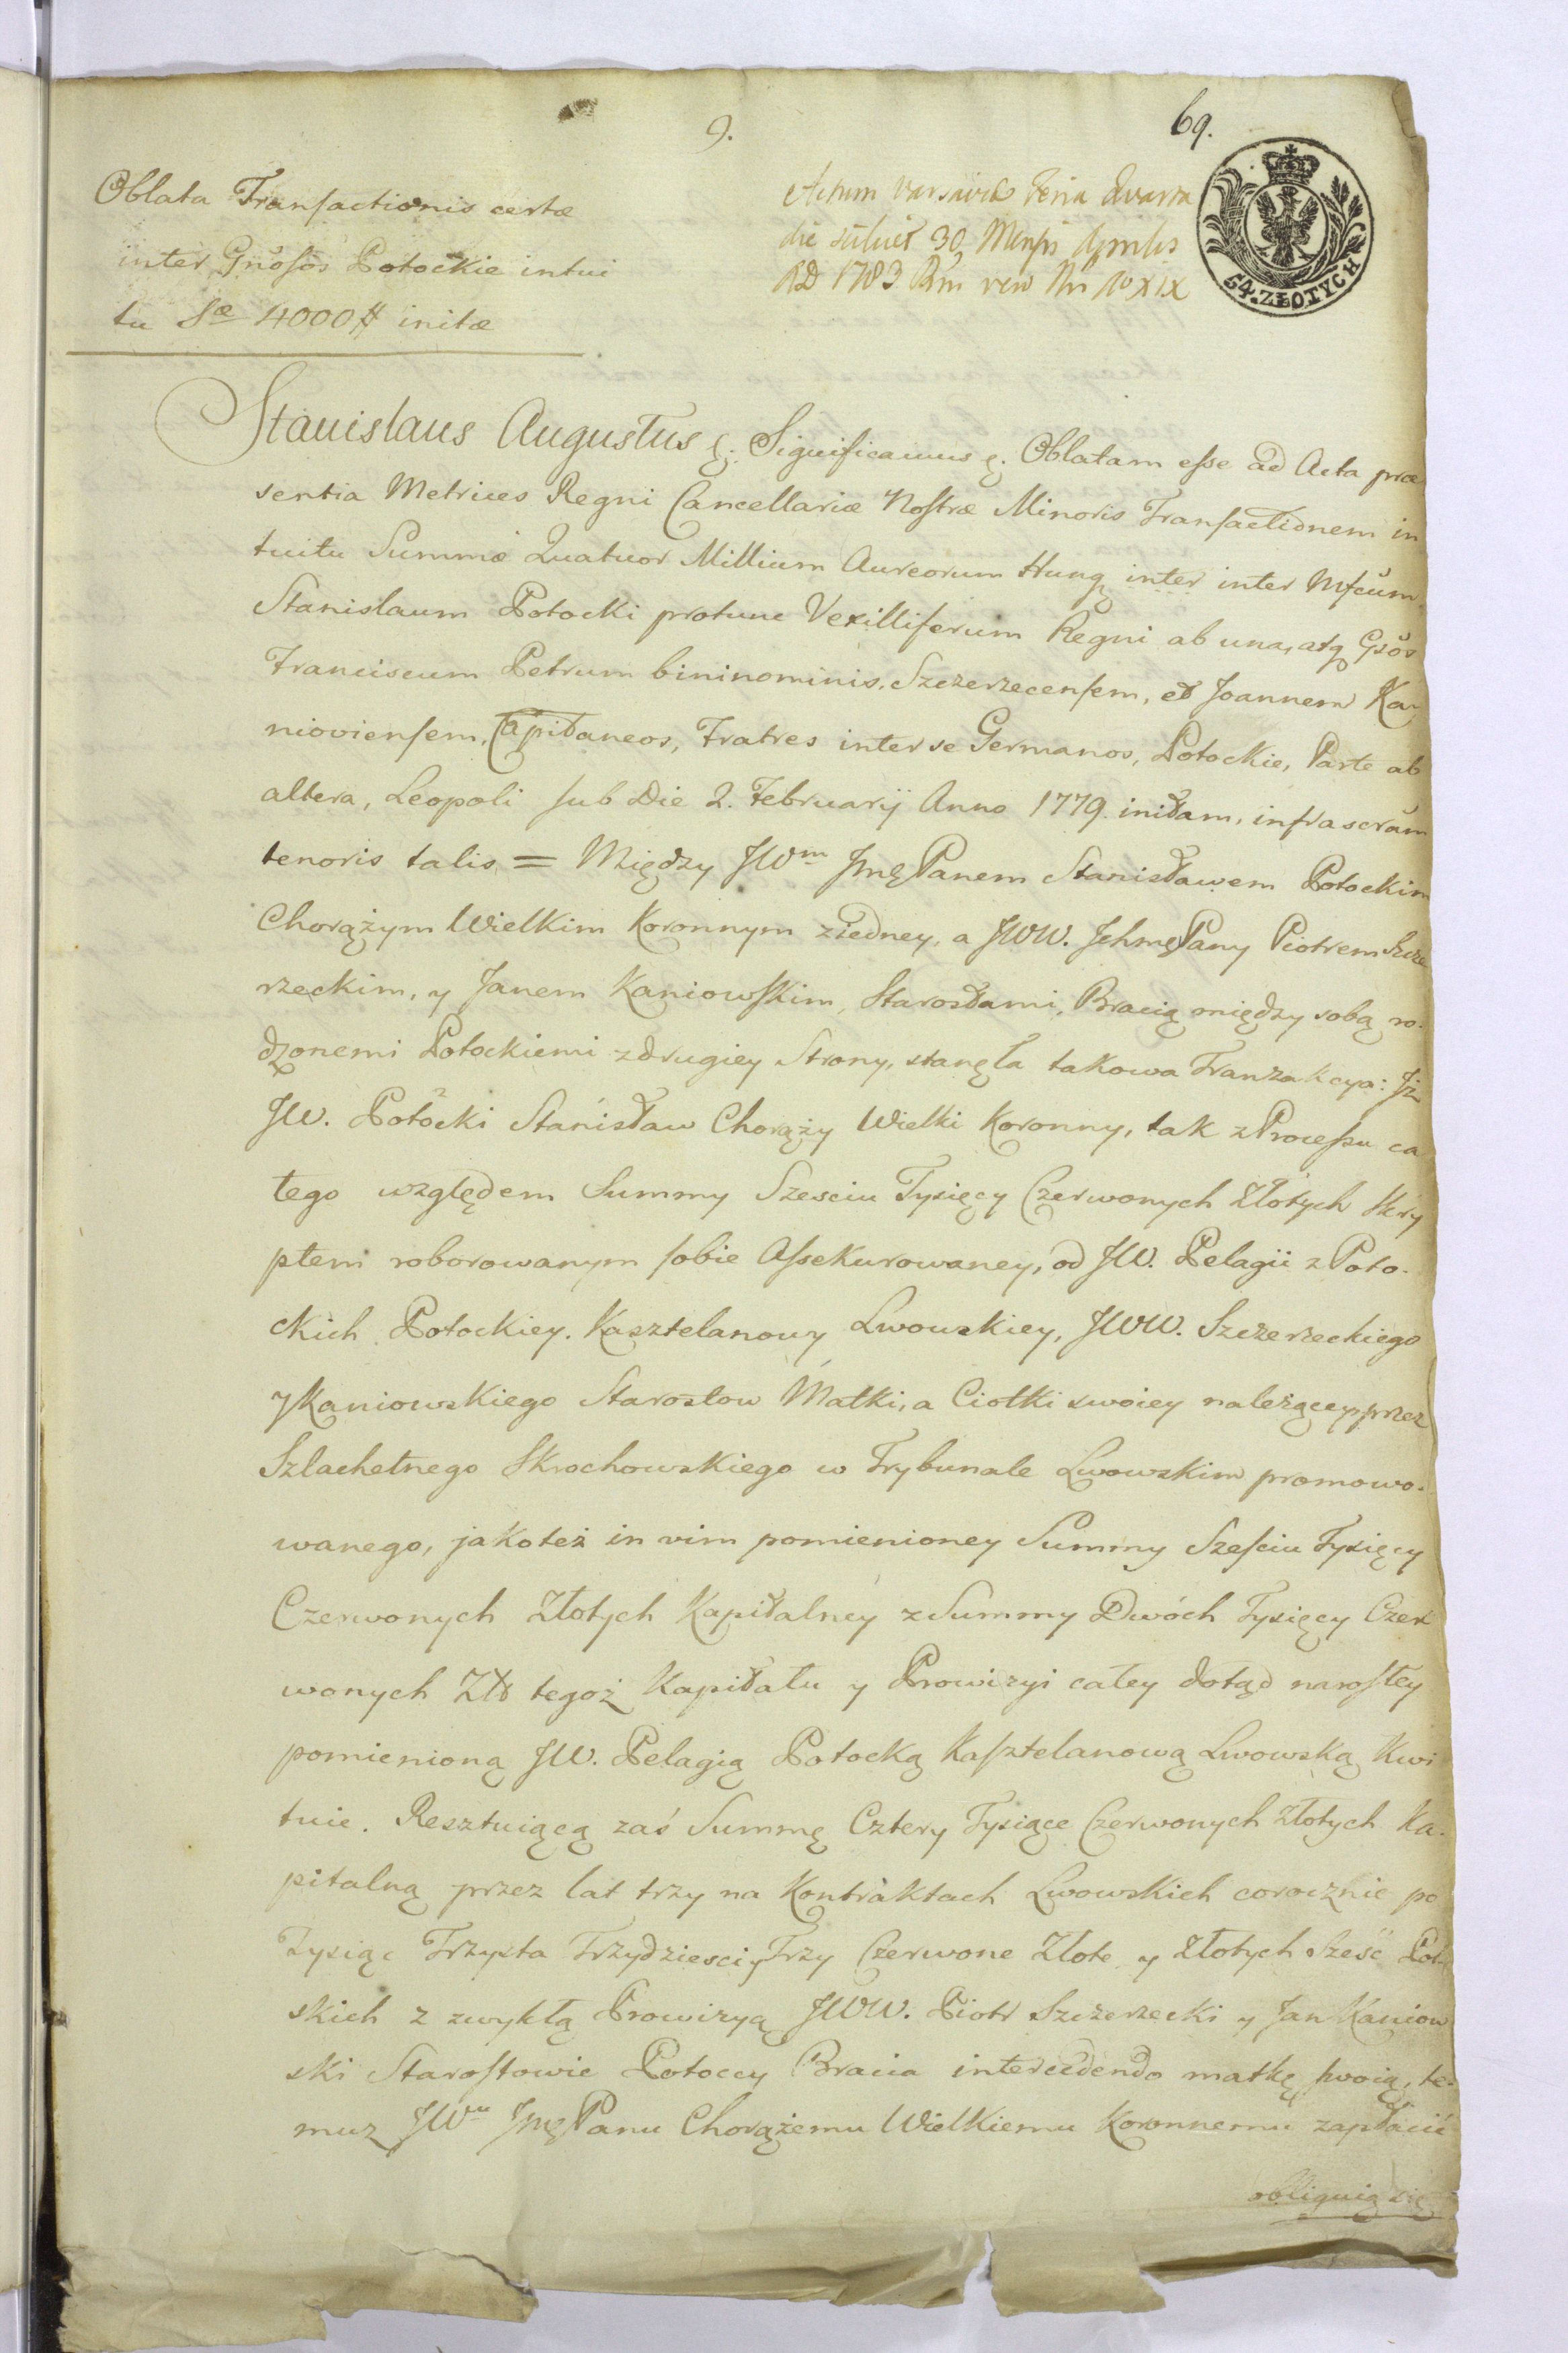 9.
69.
Oblata Transactionis certæ
inter Gnosos Potockie intui
tu Sæ 4000 # initæ
Actum Varsaviæ Feria Quarta
die scilicet 30 Mensis Aprilis
AD 1783
64. ZŁOTYCH
Stanislaus Augustus &. Significamus &. Oblatam esse ad Acta præ
sentia Metrices Regni Cancellariæ Nostræ Minoris Transactionem in
tuitu Summæ Quatuor Millium Aureorum Hung inter inter Mfcum
Stanislaum Potocki protunc Vexilliferum Regni ab una, atq Gsos
Franciscum Petrum bininominis, Szczerzecensem, et Joannem Ka-
nioviensem, Capitaneos, Fratres inter se Germanos, Potockie, Parte ab
altera, Leopoli sub Die 2. Februarij Anno 1779. initam, infrascrum
tenoris talis = Między JWm Jmę Panem Stanisławem Potockim
Chorążym Wielkim Koronnym ziedney, a JWW. Jchmę Pany Piotrem Szcze
rzeckim, y Janem Kaniowskim, Starostami, Bracią między sobą ro-
dzonemi Potockiemi zdrugiey Strony, stanęła takowa Tranzakcya: Jż
JW. Potocki Stanisław Chorąży Wielki Koronny, tak z Processu ca
łego względem Summy Szesciu Tysięcy Czerwonych Złotych Skry
ptem roborowanym sobie Assekurowaney, od JW. Pelagii z Poto-
ckich Potockiey. Kasztelanowy Lwowskiey, JWW. Szczerzeckiego
y Kaniowskiego Starostow Matki, a Ciotki swoiey należącey, przez
Szlachetnego Skrochowskiego w Trybunale Lwowskim promowo-
wanego, jakoteż in vim pomienioney Summy Sześciu Tysięcy
Czerwonych Złotych Kapitalney z Summy Dwóch Tysięcy Czer
wonych Złt tegoż Kapitału y Prowizyi całey dotąd narosłey
pomienioną JW. Pelagią Potocką Kasztelanową Lwowską Kwi
tuie. Resztuiącą zaś Summę Cztery Tysiące Czerwonych Złotych Ka-
pitalną przez lat trzy na Kontraktach Lwowskich corocznie po
Tysiąc Trzysta Trzydziesci y Trzy Czerwone Złote y Złotych Sześć Pol
skich z zwykłą Prowizyą JWW. Piotr Szczerzecki y Jan Kaniow
ski Starostowie Potoccy Bracia intercedendo matkę swoią, te-
muz JWu Jmę Panu Chorążemu Wielkiemu Koronnemu zapłacić
obliguią się